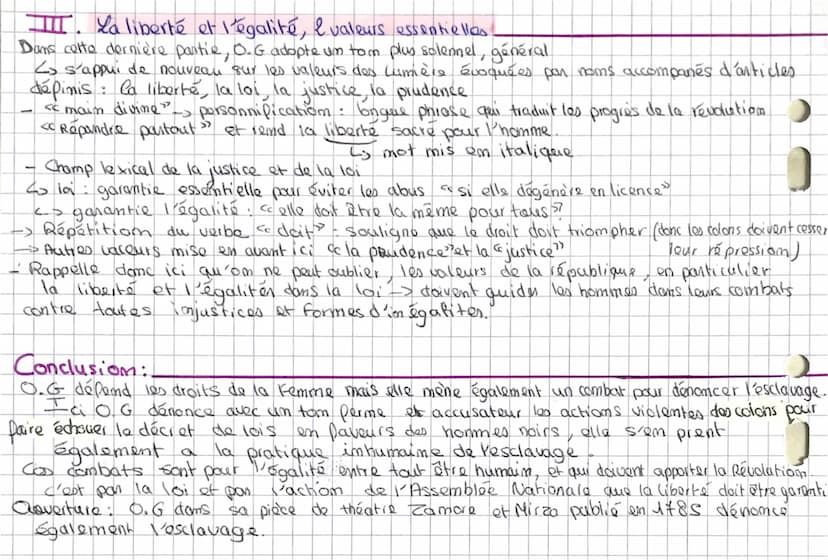 III. La liberté et l'égalité, 2 valeurs essentielles
Dans cette dernière partie, O.G adopte un ton plus solennel, général
↳ s'appui de nouveau sur les valeurs des Lumière évoquées par noms accompanés d'articles
définis : la liberté, la loi, la justice, la prudence
- "main divine" → personnification : longue phrase qui traduit les progrès de la révolution
"Répandre partout" et rend la liberté sacré pour l'homme.
↳ mot mis en italique
- Champ lexical de la justice et de la loi
↳ loi : garantie essentielle pour éviter les abus "si elle dégénère en licence"
↳ garantie l'égalité : "elle doit être la même pour tous"
→ Répétition du verbe "doit" : souligne que le droit doit triompher (donc les colons doivent cesser
leur répression)
→ Autres valeurs mise en avant ici "la prudence" et la "justice"
- Rappelle donc ici qu'on ne peut oublier, les valeurs de la république, en particulier
la liberté et l'égalités dans la loi → doivent guider les hommes dans leurs combats
contre toutes injustices et formes d'inégalités.
Conclusion :
O.G défend les droits de la Femme mais elle mène également un combat pour dénoncer l'esclavage.
Ici O.G dénonce avec un ton ferme et accusateur les actions violentes des colons pour
faire échouer le décret de lois en faveurs des hommes noirs, elle s'en prent
également a la pratique inhumaine de l'esclavage.
Ces combats sont pour l'égalité entre tout être humain, et qui doivent apporter la Révolution.
c'est par la loi et par l'action de l'Assemblée Nationale que la liberté doit être garanti
Ouverture : O.G dans sa pièce de théatre Zamore et Mirza publié en 1785 dénonce
également l'esclavage.